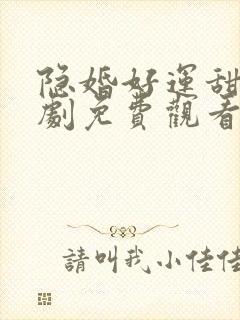 隐婚好運甜
劇免費觀看
請叫我小佳佳